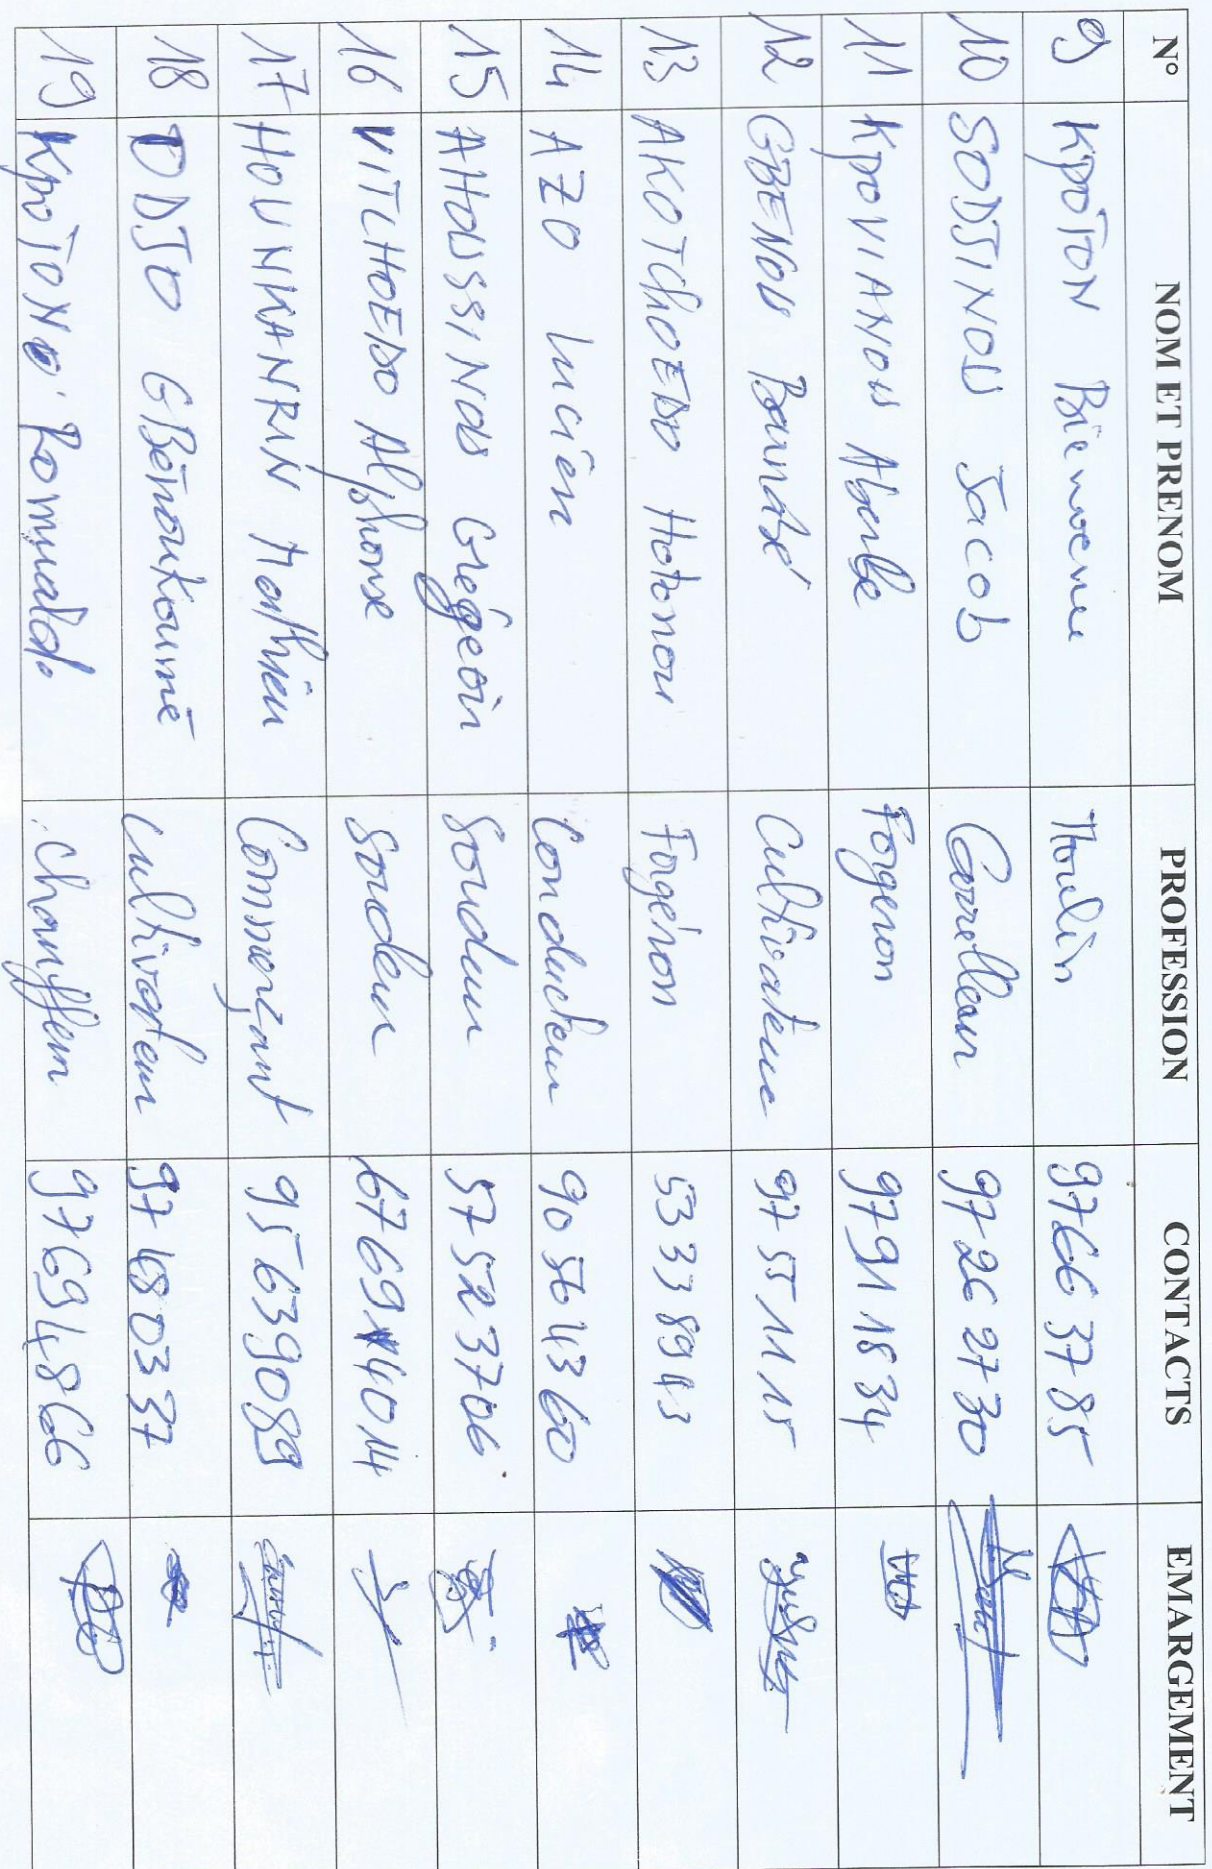 N° NOM ET PRENOM PROFESSION CONTACTS EMARGEMENT
9 KpOTON Bienvenu Moulin 97663785
10 SODJINOU Jacob Carrelleur 97262730
11 KpOVIANOU Forgeron 97911834
12 GBENOU Barnabé Cultivateur 97551115
13 AKOTChOEDO Hotonou Forgéron 53338943
14 AZO Lucien Conducteur 90564360
15 AHOUSSINOU Gregeoir Soudeur 57523706
16 VITCHOEDO Alphonse Soudeur 67694014
17 HOUNKANRIN Mathieu Commerçant 95639089
18 DDJO GBénoukoumè cultivateur 97480337
19 KpOTONO Romuald. chauffeur 97694866